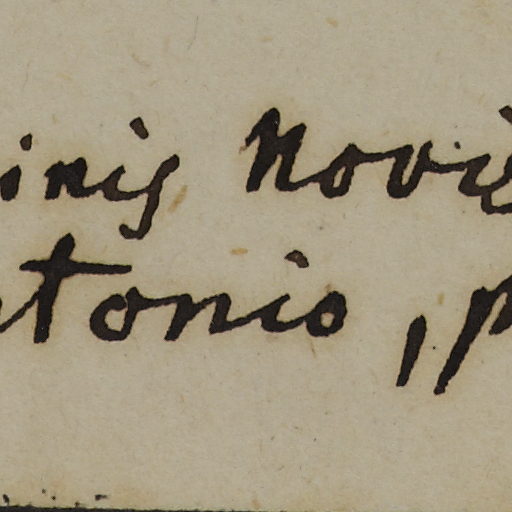 inis Novie
ntonio, p